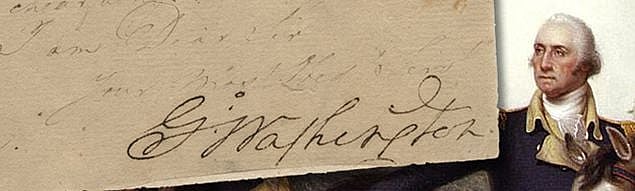 I am Dear Sir
Your Most Obed Serv
G:Washington